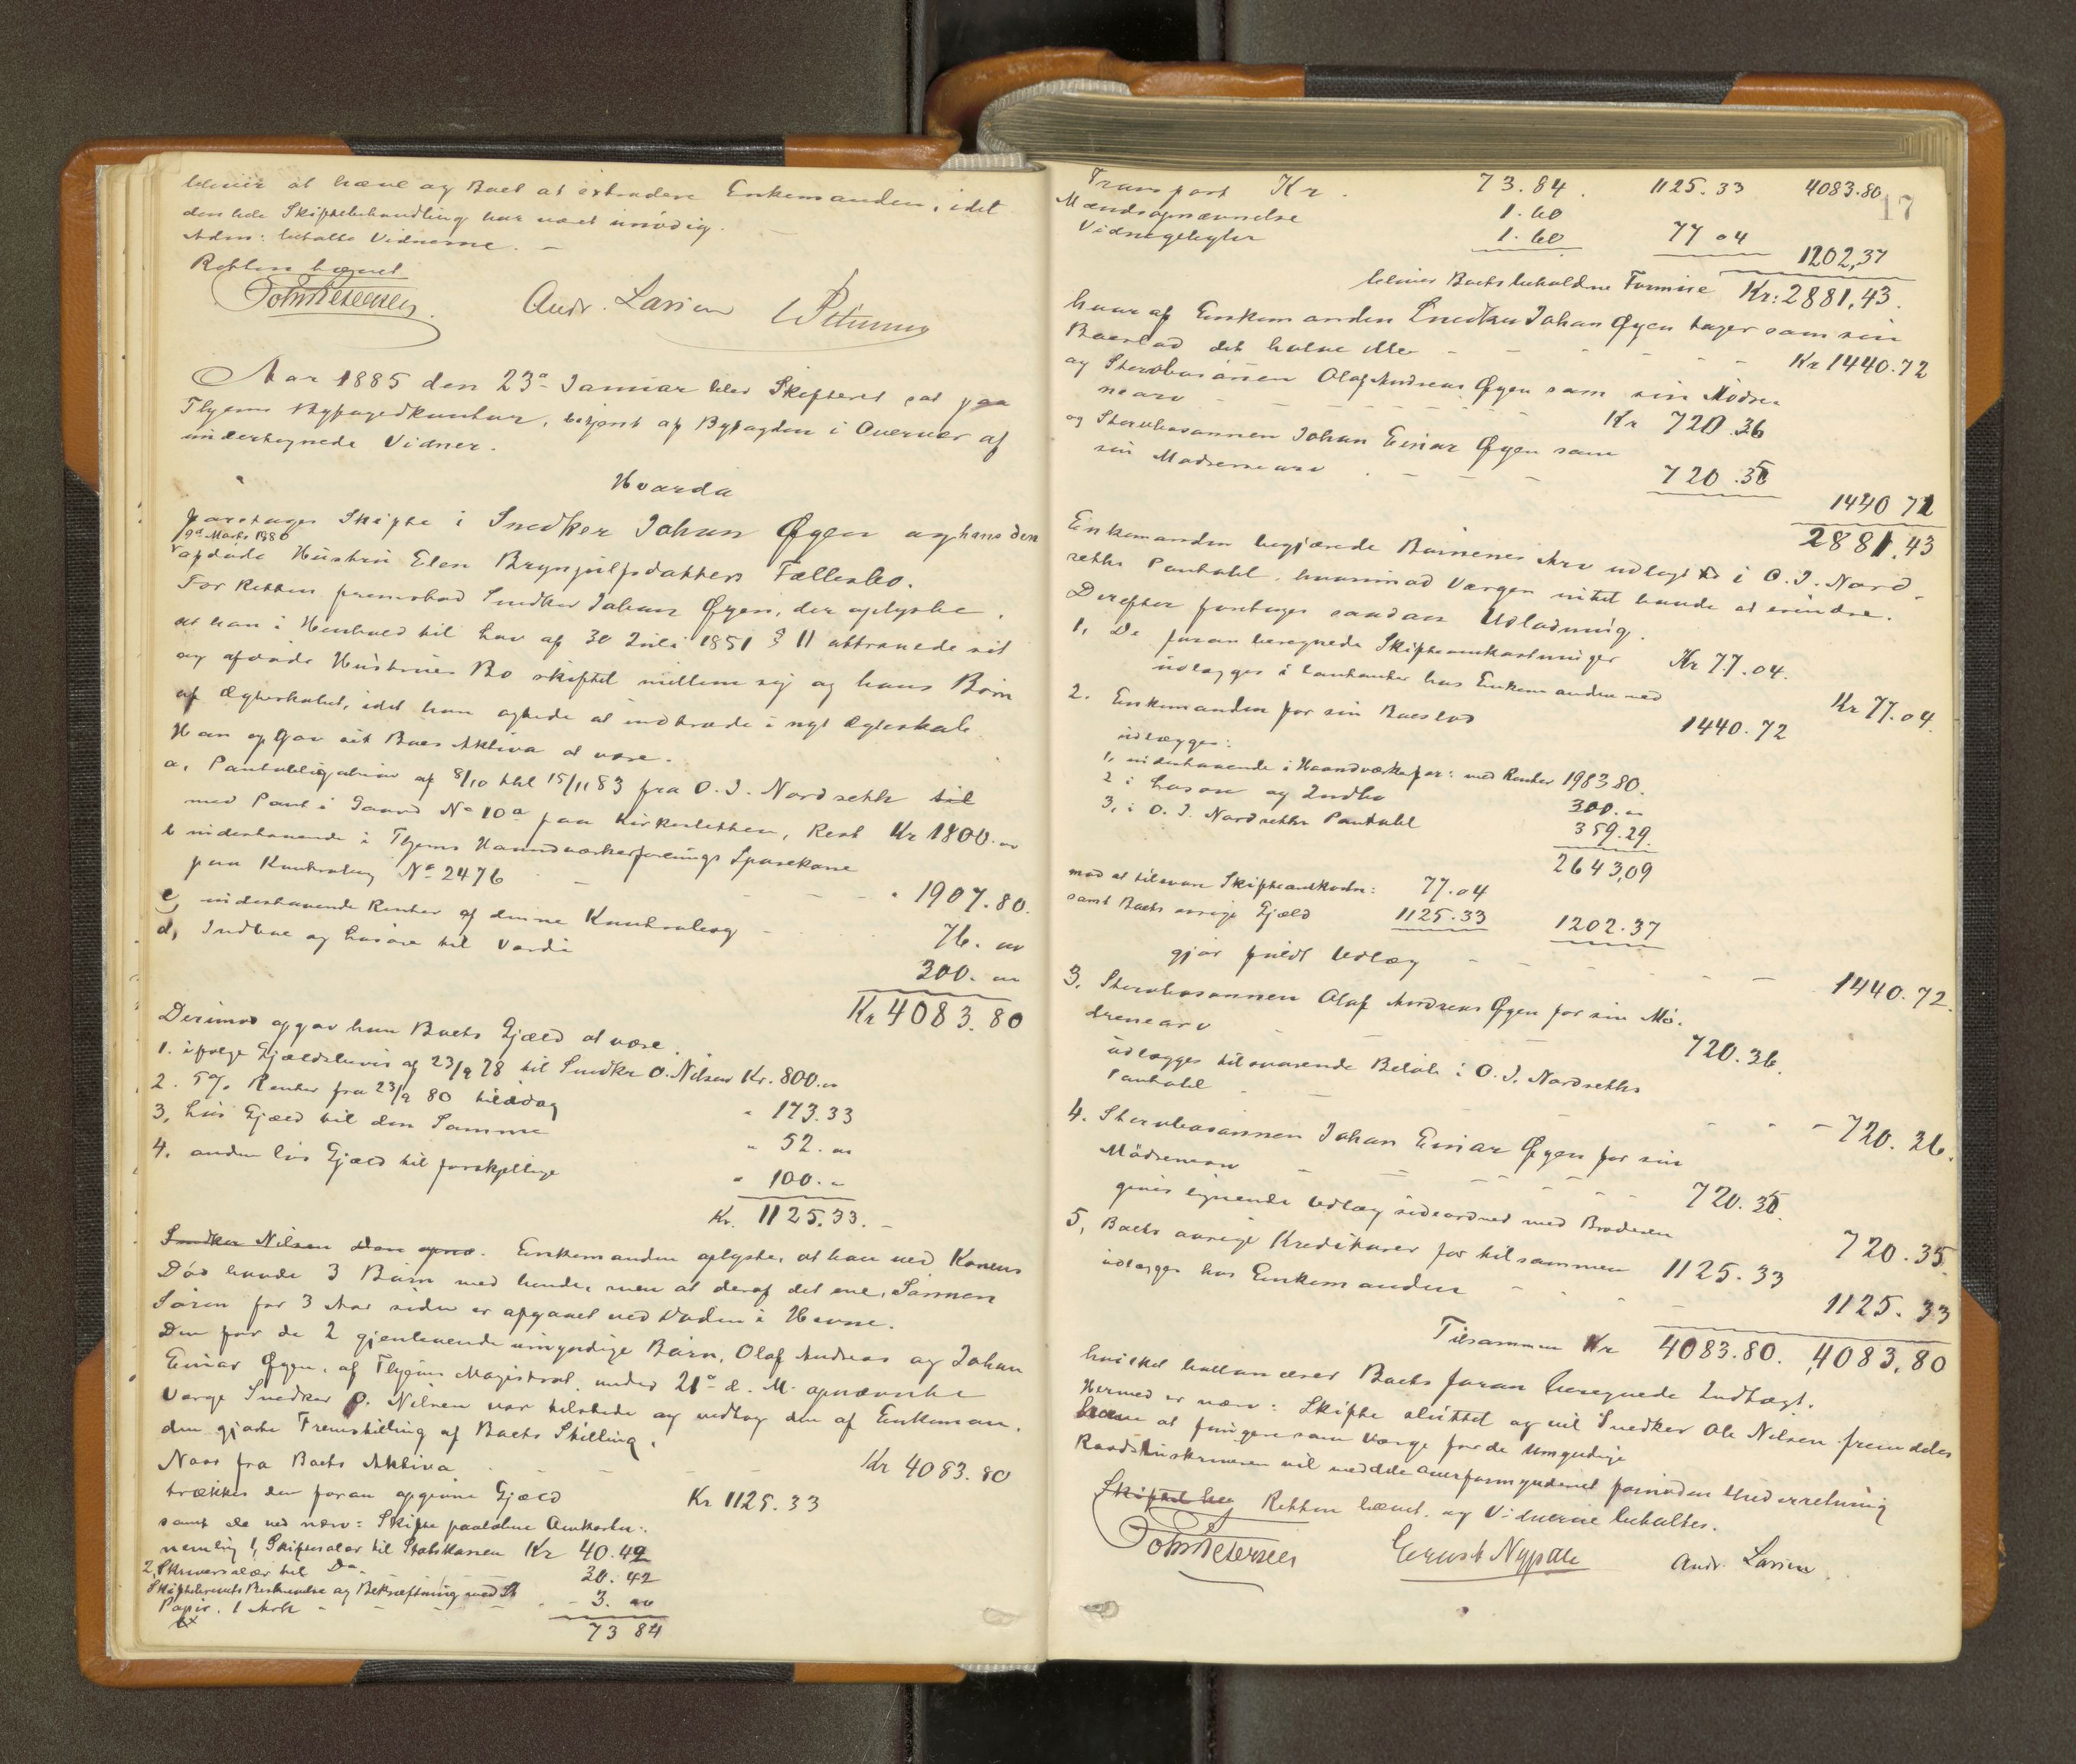 bliver at hæve og Boet at extradere Enkemanden, idet
den hele Skiftebehandling har været unødig.
Adm: betalte Vidnerne. —
Retten hævet
JohnPetersen Andr. Larsen
Aar 1885 den 23de Januar blev Skifteret sat paa
Thjems Byfogedkontor, betjent af Byfogden i Overvær af
undertegnede Vidner.
Hvorda
foretoges Skifte i Snedker Johan Øyen og hans den
9de Marts 1880
afdøde Hustru Elen Brynjulfsdatters Fællesbo.
For Retten fremstod Snedker Johan Øyen, der oplyste
at han i Henhold til Lov af 30 Juli 1851 § 11 attraaede sit
og afdøde Hustrues Bo skiftet mellem sig og hans Børn
af Ægteskabet, idet han agtede at indtræde i nyt Ægteskab
Han opgav sit Boes Aktiva at være.
a, Pantobligation af 8/10 thl 15/11 83 fra O. J. Nordseth til
med Pant i Gaard No 10a paa Kirkesletten, Rest Kr 1800. "
b indestaaende i Thjems Haandværkerforenings Sparekasse
paa Kontrabog No 2476 — — " 1907. 80.
c, indestaaende Renter af denne Kontrabog - 76. "
d, Indbo og Løsøre til Værdi 300. "
Kr 4083. 80
Derimod opgav han Boets Gjæld at være.
1. ifølge Gjældsbevis af 23/9 78 til Snedker O. Nilsen Kr. 800. "
2. 5% Renter fra 23/9 80 til idag " 173.33
3, Løs Gjæld til den Samme " 52. "
4. anden løs Gjæld til forskjellige " 100. "
Kr. 1125.33. —
Snedker Nilsen Enkemanden oplyste, at han ved Konens
Død havde 3 Børn med hende, men at deraf det ene, Sønnen
Søren for 3 Aar siden er afgaaet ved Døden i Hevne.
Den for de 2 gjenlevende umyndige Børn, Olaf Andreas og Johan
Einar Øyen, af Thjems Magistrat under 21de d. M. opnævnte
Værge Snedker O. Nilsen var tilstede og vedtog den af Enkeman-
den gjorte Fremstilling af Boets Stilling.
Naar fra Boets Aktiva - - — — Kr 4083. 80
trækkes den foran opgivne Gjæld Kr 1125. 33
samt de ved nærv: Skifte paaløbne Omkostn:
nemlig 1, Skiftesalær til Statskassen Kr 40.42
2, Skriversalær til Do - 30. 42
Skiftebrevets Beskrivelse og Bekræftning med St
Papir. 1 Ark - - 3. "
73 84
17
Transport Kr. 73. 84. 1125. 33 4083. 80
Mændsopnævnelse 1. 60
Vidnegebyhr 1. 60 77 04 1202,37
bliver Boets beholdne Formue Kr: 2881,43.
hvoraf Enkemanden Snedker Johan Øyen tager som sin
Boeslod det halve eller - - - - Kr 1440. 72
og Stervbosønnen Olaf Andreas Øyen som sin Mødre-
nearv - - - - Kr 720. 36
og Stervbosønnen Johan Einar Øyen som
sin Mødrenearv - - - 720. 35
1440 71
2881,43
Enkemanden begjærede Børnenes Arv udlagt i O. J. Nord-
seths Pantobl, hvorimod Værgen intet havde at erindre.
Derefter foretoges saadan Udlodning.
1, De foran beregnede Skifteomkostninger Kr 77. 04.
udlægges i contanter hos Enkemanden med Kr 77. 04.
2. Enkemanden for sin Boeslod 1440. 72
udlægges:
1, indestaaende i Haandværkerfor: med Renter 1983 80.
2 i Løsøre og Indbo 300. "
3, i O. J. Nordseths Pantobl 359. 29.
2643,09
mod at tilsvare Skifteomkostn: 77. 04
samt Boets øvrige Gjæld 1125. 33 1202. 37
gjør fuldt Udlæg - - - — 1440. 72.
3, Stervbosønnen Olaf Andreas Øyen for sin Mø-
drenearv 720. 36.
udlægges tilsvarende Beløb i O. J. Nordseths
Pantobl - - - - 720. 36.
4. Stervbosønnen Johan Einar Øyen for sin
Mødrenearv - - - - 720. 35.
gives lignende Udlæg sideordnet med Broderen 720. 35.
5, Boets øvrige Kreditorer for tilsammen 1125. 33
udlægges hos Enkemanden - - - - 1125. 33
Tilsammen Kr 4083. 80. 4083, 80
hvilket ballancerer Boets foran beregnede Indtægt.
Hermed er nærv: Skifte sluttet og vil Snedker Ole Nilsen fremdeles
have at fungere som Værge for de Umyndige
Raadstueskriveren vil meddele Overformynderiet fornøden Underretning
Skiftet hæ Retten hævet. og Vidnerne betaltes.
JohnPetersen Andr. Larsen.